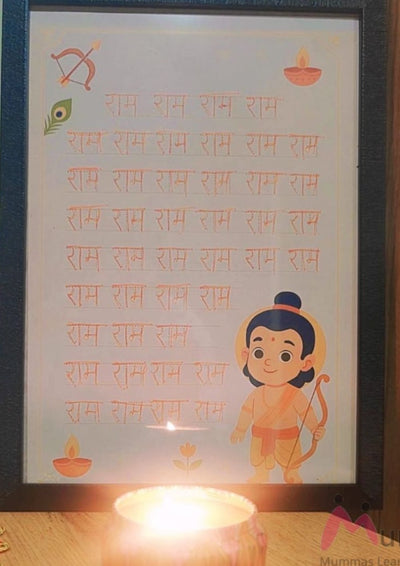 राम राम राम राम
राम राम राम राम राम राम
राम राम राम राम राम राम
राम राम राम राम राम राम
राम राम राम राम राम राम
राम राम राम राम
राम राम राम
राम राम राम राम
राम राम राम राम
Mu
Mummas Lea